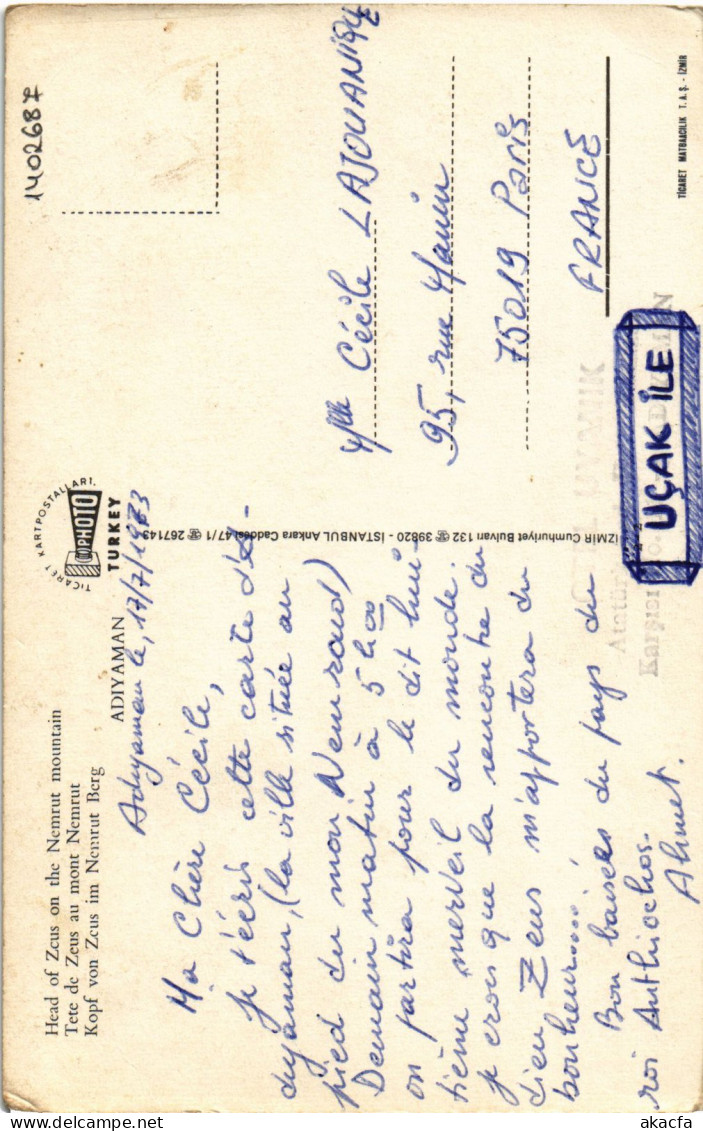 1402687
Head of Zeus on the Nemrut mountain
Tete de Zeus au mont Nemrut
Kopf von Zeus im Nemrut Berg
ADIYAMAN
TICARET KARTPOSTALLARI.
COPHOTO
TURKEY
Adıyaman le, 17/7/1973
Ma Chère Cécile,
Je t'écris cette carte d'A-
dıyaman, (la ville située au
pied du mon Nemraud)
Demain matin à 5 h 00
on partira pour le dit hui-
tième merveil du monde.
Je crois que la rencontre du
dieu Zeus m'apportera du
bonheur....
Bon baisées du pays du
roi Anthiochos.
Ahmet.
İZMİR Cumhuriyet Bulvarı 132 ☎ 39820 - İSTANBUL Ankara Caddesi 47/1 ☎ 267143
Mlle Cécile LAJOUANIQUE
95, rue Manin
75019 Paris
FRANCE
UÇAK İLE
TİCARET MATBAACILIK T.A.Ş. - İZMİR
Atatürk
Karşısı No.
akafca
www.delcampe.net